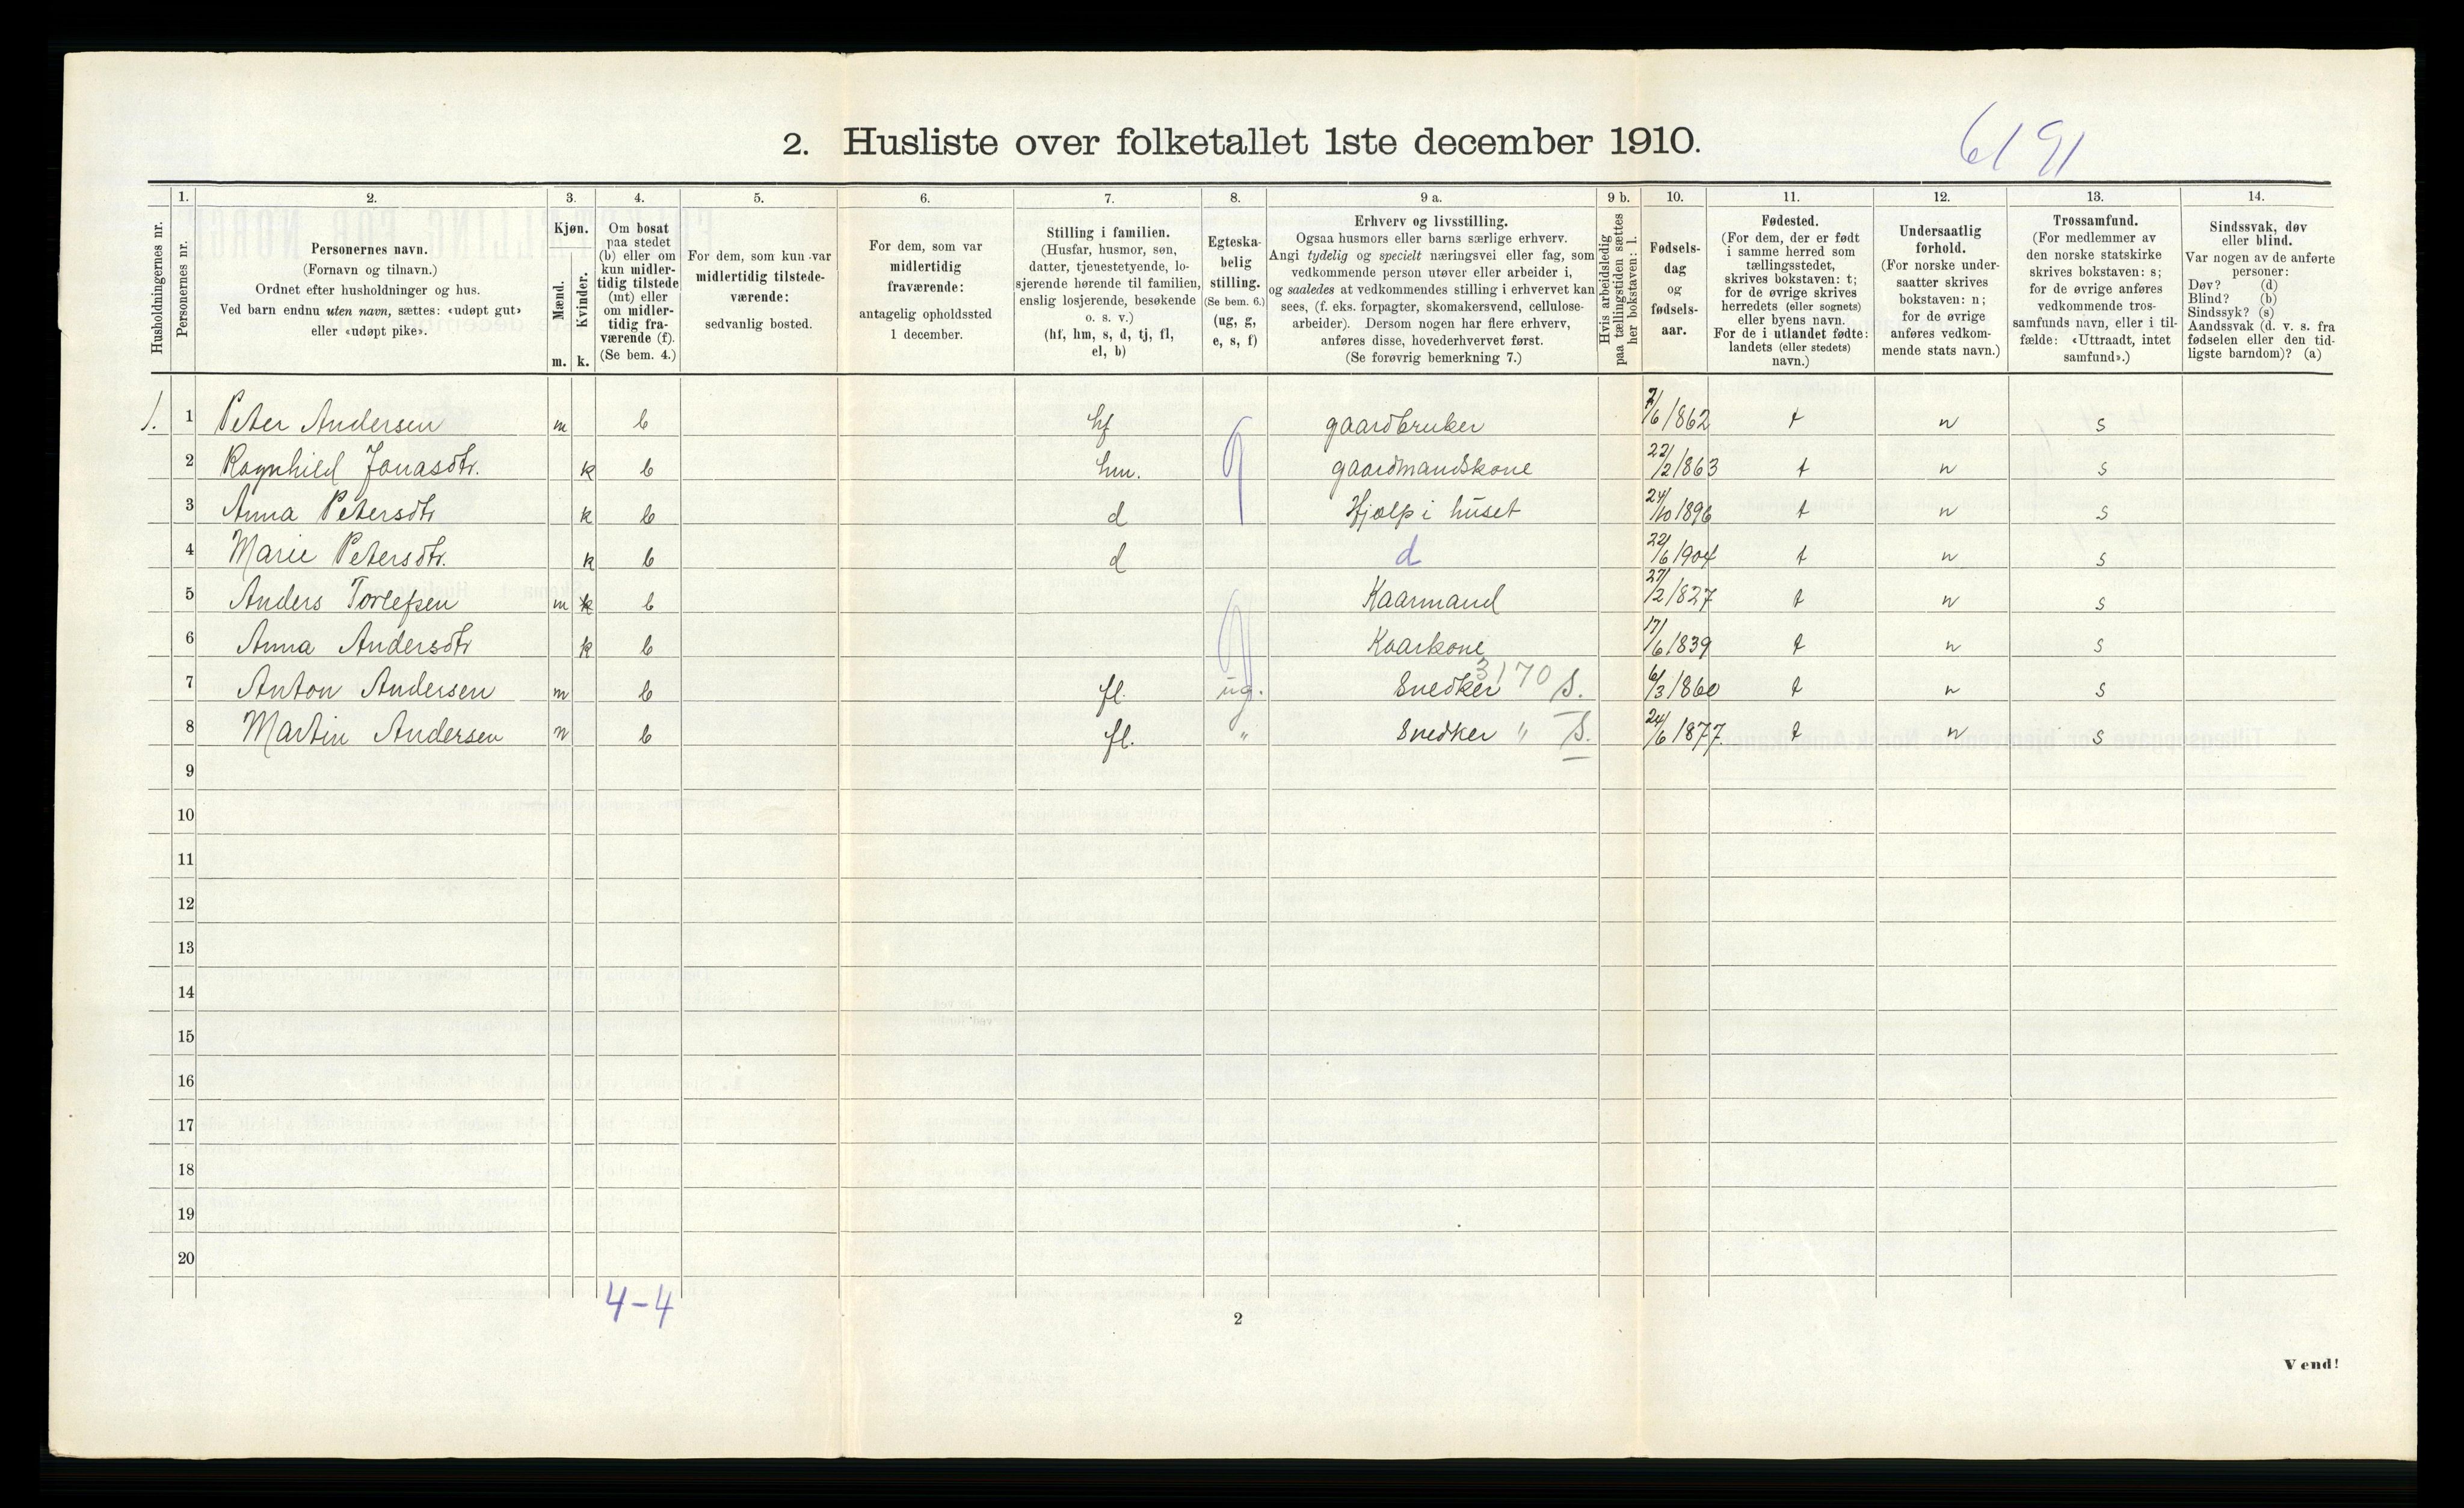 2. Husliste over folketallet 1ste december 1910.
6191
Husholdningernes nr.
1.
Personernes nr.
2.
Personernes navn.
(Fornavn og tilnavn.)
Ordnet efter husholdninger og hus.
Ved barn endnu uten navn, sættes: «udøpt gut»
eller «udøpt pike».
3.
Kjøn.
Mænd.
m.
Kvinder.
k.
4.
Om bosat
paa stedet
(b) eller om
kun midler-
tidig tilstede
(mt) eller
om midler-
tidig fra-
værende (f).
(Se bem. 4.)
5.
For dem, som kun var
midlertidig tilstede-
værende:
sedvanlig bosted.
6.
For dem, som var
midlertidig
fraværende:
antagelig opholdssted
1 december.
7.
Stilling i familien.
(Husfar, husmor, søn,
datter, tjenestetyende, lo-
sjerende hørende til familien,
enslig losjerende, besøkende
o. s. v.)
(hf, hm, s, d, tj, fl,
el, b)
8.
Egteska-
belig
stilling.
(Se bem. 6.)
(ug, g,
e, s, f)
9 a.
Erhverv og livsstilling.
Ogsaa husmors eller barns særlige erhverv.
Angi tydelig og specielt næringsvei eller fag, som
vedkommende person utøver eller arbeider i,
og saaledes at vedkommendes stilling i erhvervet kan
sees, (f. eks. forpagter, skomakersvend, cellulose-
arbeider). Dersom nogen har flere erhverv,
anføres disse, hovederhvervet først.
(Se forøvrig bemerkning 7.)
9 b.
Hvis arbeidsledig
paa tællingstiden sættes
her bokstaven: l.
10.
Fødsels-
dag
og
fødsels-
aar.
11.
Fødested.
(For dem, der er født
i samme herred som
tællingsstedet,
skrives bokstaven: t;
for de øvrige skrives
herredets (eller sognets)
eller byens navn.
For de i utlandet fødte:
landets (eller stedets)
navn.)
12.
Undersaatlig
forhold.
(For norske under-
saatter skrives
bokstaven: n;
for de øvrige
anføres vedkom-
mende stats navn.)
13.
Trossamfund.
(For medlemmer av
den norske statskirke
skrives bokstaven: s;
for de øvrige anføres
vedkommende tros-
samfunds navn, eller i til-
fælde: «Uttraadt, intet
samfund».)
14.
Sindssvak, døv
eller blind.
Var nogen av de anførte
personer:
Døv? (d)
Blind? (b)
Sindssyk? (s)
Aandssvak (d. v. s. fra
fødselen eller den tid-
ligste barndom)? (a)
1. 1 Peter Andersen m b hf gaardbruker 7/6 1862 t n s
2 Ragnhild Jonasdtr. k b hm. g gaardmandskone 22/2 1863 t n s
3 Anna Petersdtr k b d Hjælp i huset 24/10 1896 t n s
4 Marie Petersdtr. k b d d 22/6 1904 t n s
5 Anders Torlefsen m k b Kaarmand 27/2 1827 t n s
6 Anna Andersdtr k b g Kaarkone 17/6 1839 t n s
7 Anton Andersen m b fl. ug. Snedker 3170 S. 6/3 1860 t n s
8 Martin Andersen m b fl. " Snedker " S. 24/6 1877. t n s
9
10
11
12
13
14
15
16
17
18
19
20
4-4
2
Vend!